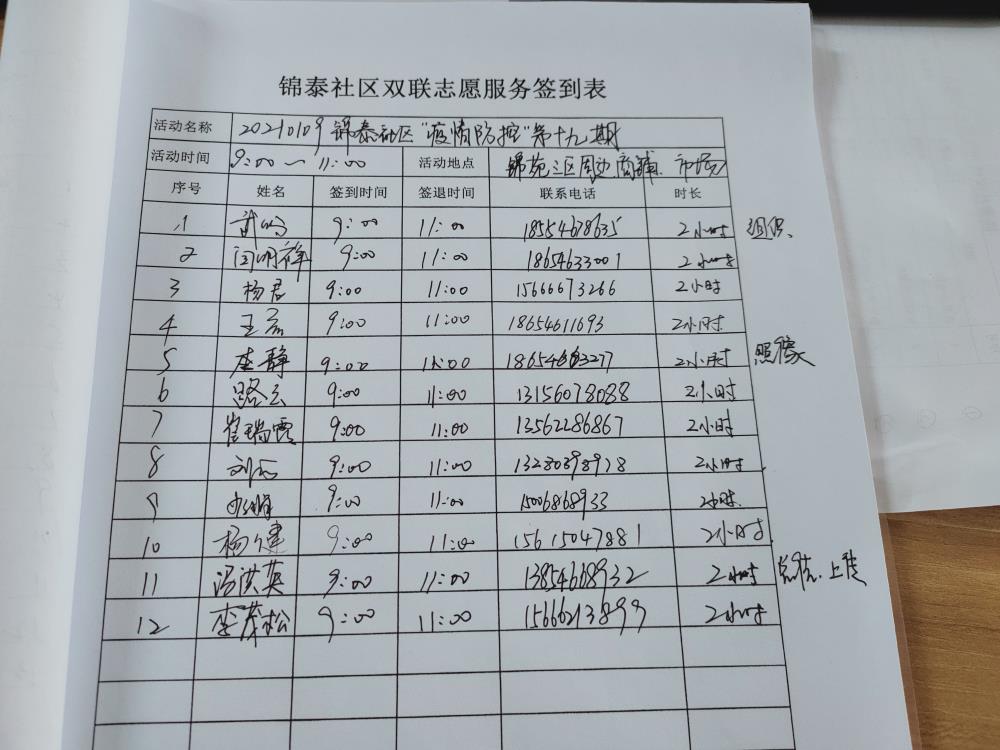 锦泰社区双联志愿服务签到表
活动名称 20210109 锦泰社区"疫情防控"第十九期
活动时间 9:00～11:00 活动地点 锦苑三区周边商铺、市场
序号 姓名 签到时间 签退时间 联系电话 时长
1 9:00 11:00 18554678635 2小时 组织
2 闫明祥 9:00 11:00 18654633001 2小时
3 杨君 9:00 11:00 15666673266 2小时
4 王磊 9:00 11:00 18654611693 2小时
5 静 9:00 11:00 18654663277 2小时 照像
6 路云 9:00 11:00 13156078088 2小时
7 崔瑞霞 9:00 11:00 13562286867 2小时
8 刘 9:00 11:00 13280398978 2小时
9 9:00 11:00 15006868933 2小时
10 杨健 9:00 11:00 15615047881 2小时
11 冯洪英 9:00 11:00 13854668932 2小时 总结、上传
12 李茂松 9:00 11:00 15666213899 2小时